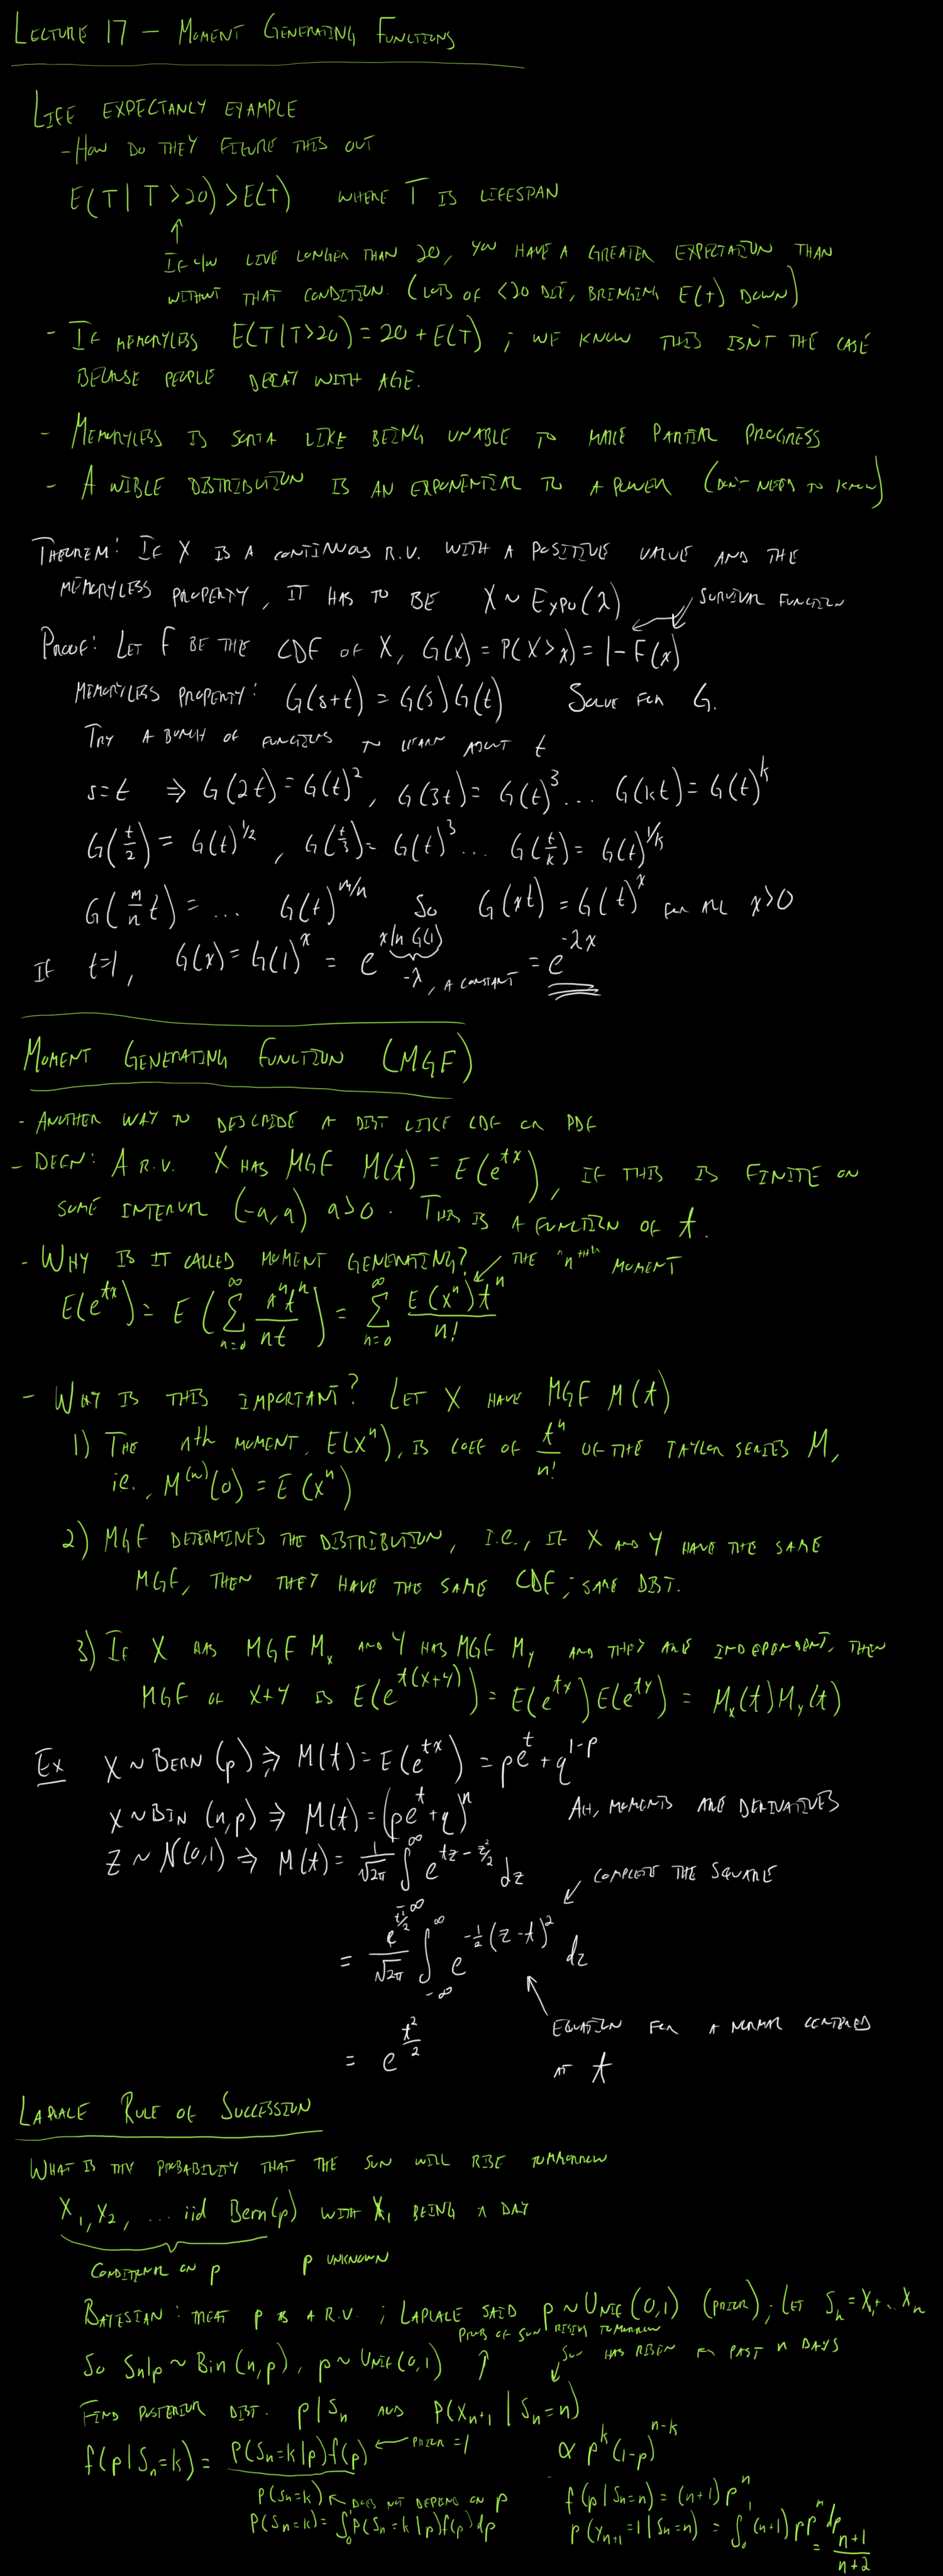 LECTURE 17 – MOMENT GENERATING FUNCTIONS
LIFE EXPECTANLY EXAMPLE
- HOW DO THEY FIGURE THIS OUT
E(T | T > 20) > E(T) WHERE T IS LIFESPAN
↑
IF YOU LIVE LONGER THAN 20, YOU HAVE A GREATER EXPECTATION THAN
WITHOUT THAT CONDITION. (LOTS OF <20 DIE, BRINGING E(t) DOWN)
- IF MEMORYLESS E(T | T>20) = 20 + E(T) ; WE KNOW THIS ISN'T THE CASE
BECAUSE PEOPLE DECAY WITH AGE.
- MEMORYLESS IS SORTA LIKE BEING UNABLE TO MAKE PARTIAL PROGRESS
- A WIBLE DISTRIBUTION IS AN EXPONENTIAL TO A POWER (DON'T NEED TO KNOW)
THEOREM: IF X IS A CONTINUOUS R.V. WITH A POSITIVE VALUE AND THE
MEMORYLESS PROPERTY, IT HAS TO BE X ~ EXPO(λ)
SURVIVAL FUNCTION
PROOF: LET F BE THE CDF OF X, G(x) = P(X > x) = 1 - F(x)
MEMORYLESS PROPERTY: G(s+t) = G(s)G(t) SOLVE FOR G.
TRY A BUNCH OF FUNCTIONS TO LEARN ABOUT t
s=t ⇒ G(2t) = G(t)², G(3t) = G(t)³ ... G(kt) = G(t)^k
G(t/2) = G(t)^{1/2}, G(t/3) = G(t)³ ... G(t/k) = G(t)^{1/k}
G(m/n t) = ... G(t)^{m/n} SO G(xt) = G(t)^x FOR ALL x>0
IF t=1, G(x) = G(1)^x = e^{x ln G(1)} = e^{-λx}
-λ, A CONSTANT
MOMENT GENERATING FUNCTION (MGF)
- ANOTHER WAY TO DESCRIBE A DIST LIKE CDF OR PDF
- DEFN: A R.V. X HAS MGF M(t) = E(e^{tx}), IF THIS IS FINITE ON
SOME INTERVAL (-a, a) a>0. THIS IS A FUNCTION OF t.
- WHY IS IT CALLED MOMENT GENERATING? THE "nth" MOMENT
E(e^{tx}) = E(∑_{n=0}^∞ x^n t^n / n t) = ∑_{n=0}^∞ E(x^n) t^n / n!
- WHY IS THIS IMPORTANT? LET X HAVE MGF M(t)
1) THE nth MOMENT, E(x^n), IS COEF OF t^n/n! OF THE TAYLOR SERIES M,
ie., M^{(n)}(0) = E(x^n)
2) MGF DETERMINES THE DISTRIBUTION, I.E., IF X AND Y HAVE THE SAME
MGF, THEN THEY HAVE THE SAME CDF; SAME DIST.
3) IF X HAS MGF M_x AND Y HAS MGF M_y AND THEY ARE INDEPENDENT, THEN
MGF OF X+Y IS E(e^{t(x+y)}) = E(e^{tx})E(e^{ty}) = M_x(t)M_y(t)
EX X ~ BERN(p) ⇒ M(t) = E(e^{tx}) = pe^t + q^{1-p}
X ~ BIN(n,p) ⇒ M(t) = (pe^t + q)^n AH, MOMENTS ARE DERIVATIVES
Z ~ N(0,1) ⇒ M(t) = 1/√2π ∫_{-∞}^{∞} e^{tz - z²/2} dz
COMPLETE THE SQUARE
= e^{t²/2}/√2π ∫_{-∞}^{∞} e^{-½(z-t)²} dz
EQUATION FOR A NORMAL CENTERED
AT t
= e^{t²/2}
LAPLACE RULE OF SUCCESSION
WHAT IS THE PROBABILITY THAT THE SUN WILL RISE TOMMORROW
X₁, X₂, ... iid Bern(p) WITH X₁ BEING A DAY
CONDITIONAL ON p p UNKNOWN
BAYESIAN: TREAT p AS A R.V. ; LAPLACE SAID p ~ UNIF(0,1) (PRIOR). LET Sₙ = X₁ + ... Xₙ
PROB OF SUN RISING TOMORROW
SUN HAS RISEN FOR PAST n DAYS
SO Sn|p ~ Bin(n,p), p ~ UNIF(0,1)
FIND POSTERIOR DIST. p | Sₙ AND P(X_{n+1} | Sₙ = n)
f(p | Sₙ = k) = P(Sₙ = k | p) f(p) / P(Sₙ = k) ← PRIOR = 1 ∝ p^k (1-p)^{n-k}
← DOES NOT DEPEND ON p
f(p | Sₙ = n) = (n+1) p^n
P(Sₙ = k) = ∫₀¹ P(Sₙ = k | p) f(p) dp
P(X_{n+1} = 1 | Sₙ = n) = ∫₀¹ (n+1) p p^n dp
= n+1 / n+2